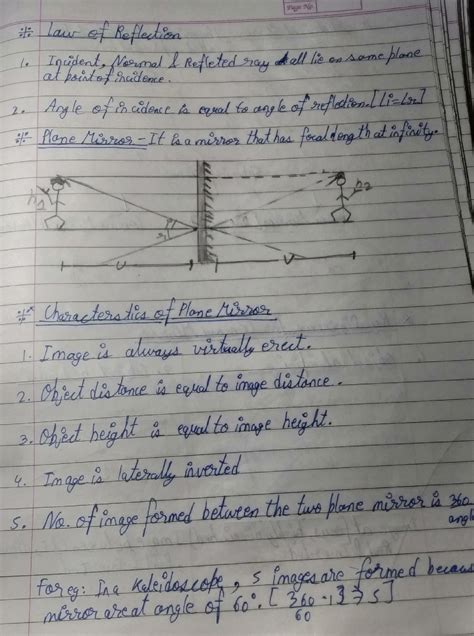 Page No.
* Law of Reflection
1. Incident, Normal & Refleted ray all lie on same plane
at point of incidence.
2. Angle of incidence is equal to angle of reflection. [Li=Lr]
* Plane Mirror - It is a mirror that has focal length at infinity.
h1
h2
u
v
* Characterstics of Plane Mirror
1. Image is always virtually erect.
2. Object distance is equal to image distance.
3. Object height is equal to image height.
4. Image is laterally inverted
5. No. of image formed between the two plane mirror is 360
angle
For eg: In a Kaleidoscope, 5 images are formed because
mirror are at angle of 60°. [360/60 - 1 ⇒ 5]